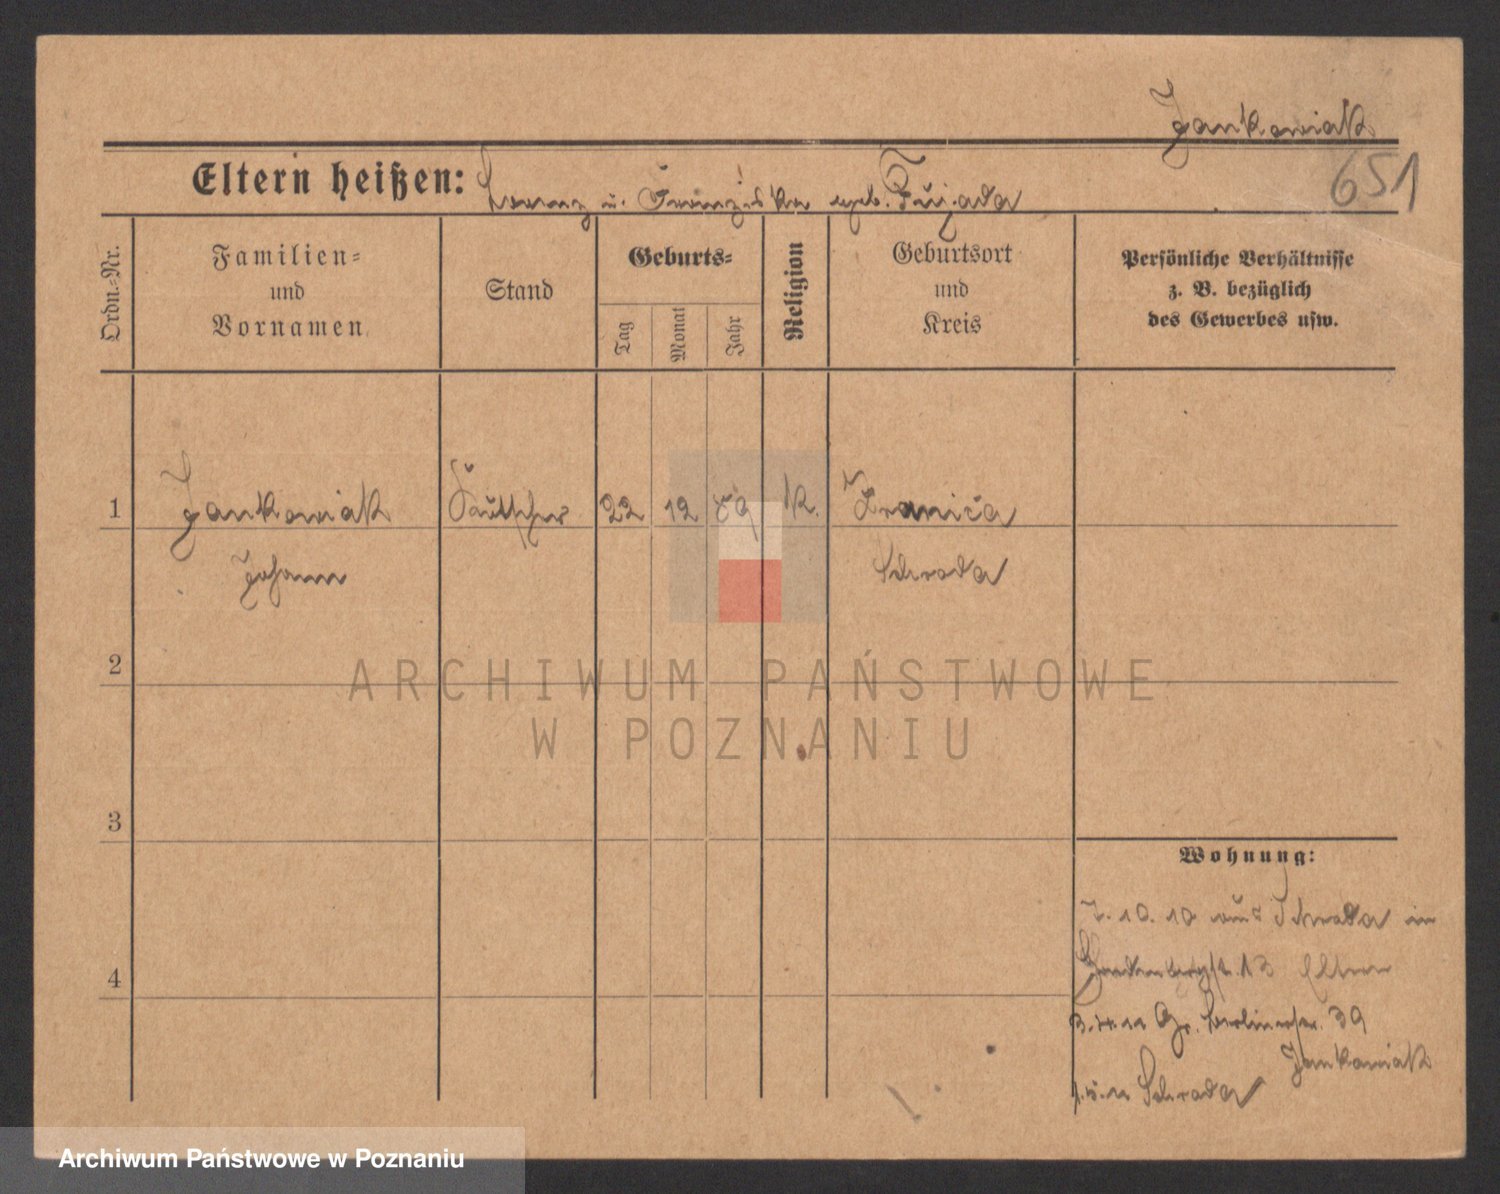 Jankowiak
651
Eltern heißen: Lorenz u. Franziska geb. Fujada
Ordn.-Nr.
Familien-
und
Vornamen
Stand
Geburts-
Tag
Monat
Jahr
Religion
Geburtsort
und
Kreis
Persönliche Verhältnisse
z. B. bezüglich
des Gewerbes usw.
1
Jankowiak
22 12 89 k.
Johann
Schroda
2
ARCHIWUM PAŃSTWOWE
W POZNANIU
3
Wohnung:
7.10.10 aus Schroda in
13 Eltern
4
Gr. Berlinerstr. 39
Jankowiak
Schroda
Archiwum Państwowe w Poznaniu